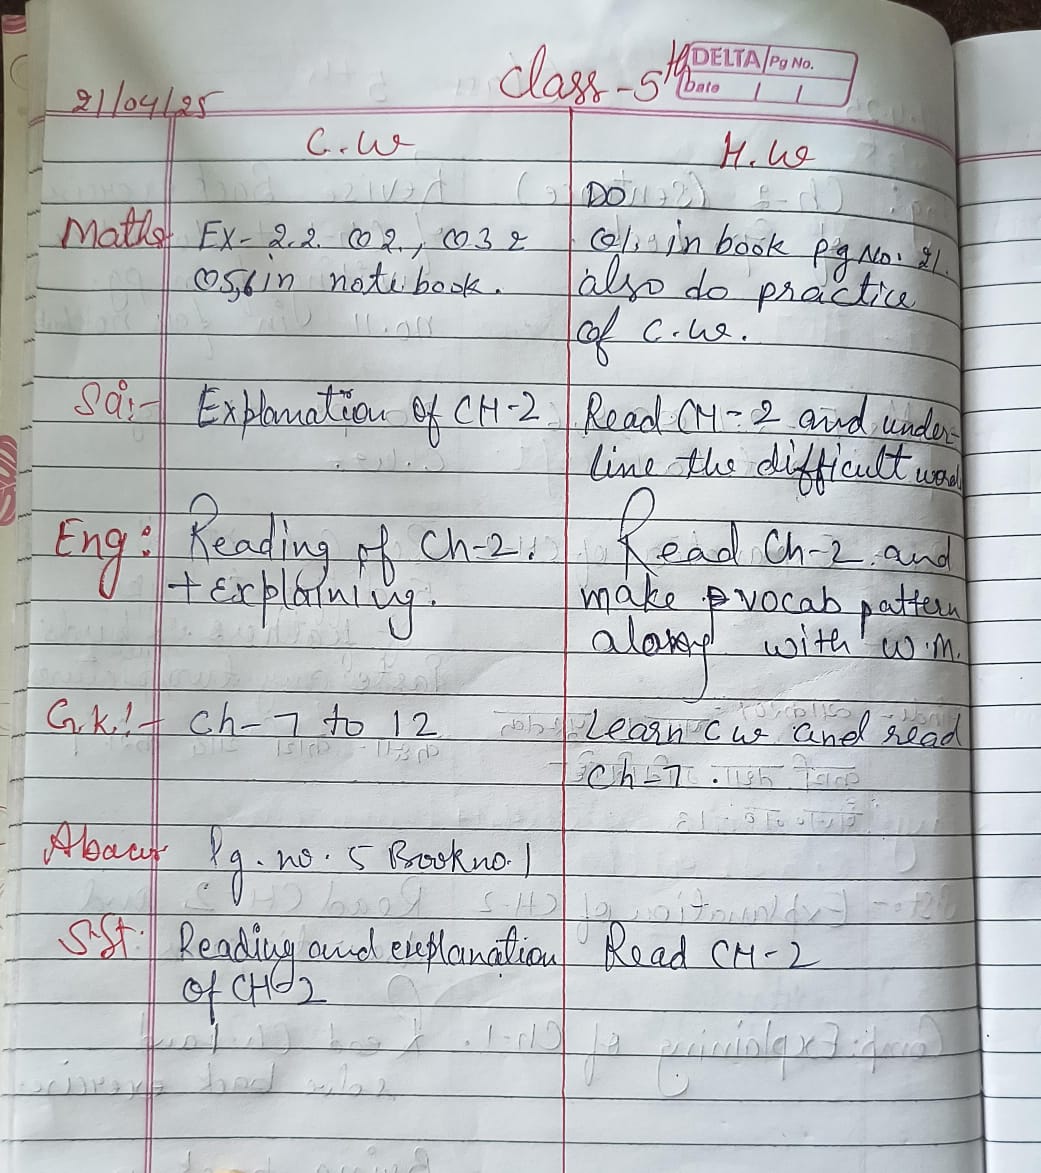 Class-5th
DELTA Pg No.
Date / /
21/04/25
C.W H.W
DO
Maths Ex- 2.2. Q2., Q3 & Q1. in book Pg No. 21.
Q5,6 in notebook. also do practice
of C.W.
Sci:- Explanation of CH-2 Read CH-2 and under-
line the difficult word
Eng: Reading of Ch-2. Read Ch-2. and
+ Explaining. make vocab pattern
along with W.M.
G.K!- Ch-7 to 12 Learn CW and read
Ch-7.
Abacus Pg. no. 5 Book no. 1
S.St: Reading and explanation Read CH-2
of CH-2